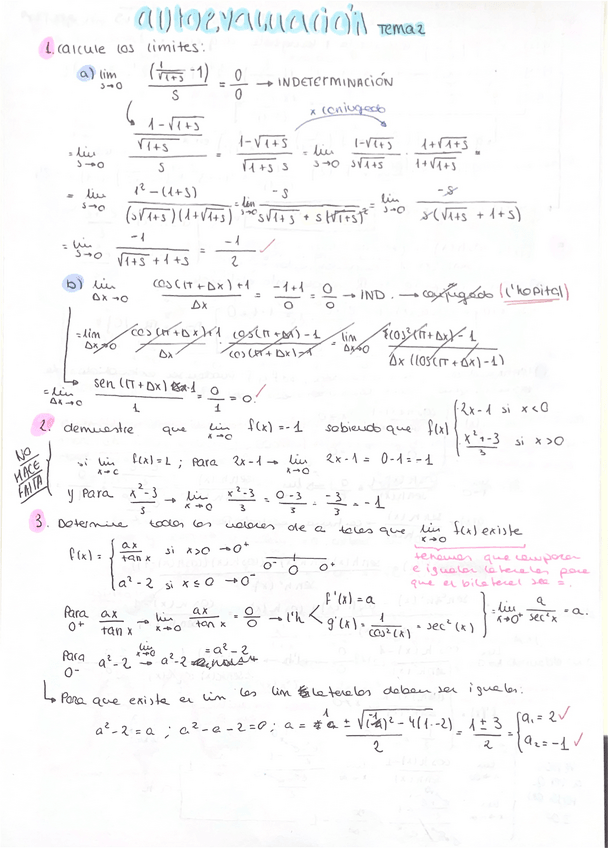 autoevaluación TEMA 2
1. Calcule los límites:
a) lim s→0 (1/√(1+s) - 1)/s = 0/0 → INDETERMINACIÓN
x conjugado
= lim s→0 ((1-√(1+s))/√(1+s))/s = (1-√(1+s))/(√(1+s) s) = lim s→0 (1-√(1+s))/(s√(1+s)) · (1+√(1+s))/(1+√(1+s)) =
= lim s→0 (1²-(1+s))/((s√(1+s))(1+√(1+s))) = lim s→0 -s/(s√(1+s) + s(√(1+s))²) = lim s→0 -s/(s(√(1+s) + 1+s))
= lim s→0 -1/(√(1+s) + 1+s) = -1/2 ✓
b) lim Δx→0 (cos(π+Δx)+1)/Δx = (-1+1)/0 = 0/0 → IND. → conjugado (L'hopital)
= lim Δx→0 (cos(π+Δx)+1)/Δx · (cos(π+Δx)-1)/(cos(π+Δx)-1) = lim Δx→0 (cos²(π+Δx)-1)/(Δx(cos(π+Δx)-1))
= lim Δx→0 sen(π+Δx)/1 = 0/1 = 0 ✓
2. demuestre que lim x→0 f(x)=-1 sabiendo que f(x) { 2x-1 si x<0
x²+-3/3 si x>0
NO HACE FALTA
si lim x→c f(x)=L; Para 2x-1 → lim x→0 2x-1 = 0-1 = -1
y Para (x²-3)/3 → lim x→0 (x²-3)/3 = (0-3)/3 = -3/3 = -1
3. Determine todos los valores de a tales que lim x→0 f(x) existe
f(x) = { ax/tan x si x>0 → 0⁺
0⁻ 0 0⁺
a²-2 si x≤0 → 0⁻
tenemos que comparar
e igualar laterales para
que el bilateral sea =.
Para 0⁺ ax/tan x → lim x→0 ax/tan x = 0/0 → L'h < f'(x)=a
g'(x) = 1/cos²(x) = sec²(x) } = lim x→0⁺ a/sec²x = a.
Para 0⁻ a²-2 → lim x→0 a²-2 = a²-2
Para que exista el lim los lim laterales deben ser iguales:
a²-2=a; a²-a-2=0; a = (1 ± √((-1)²-4(1·-2)))/2 = (1±3)/2 = { a₁=2 ✓
a₂=-1 ✓